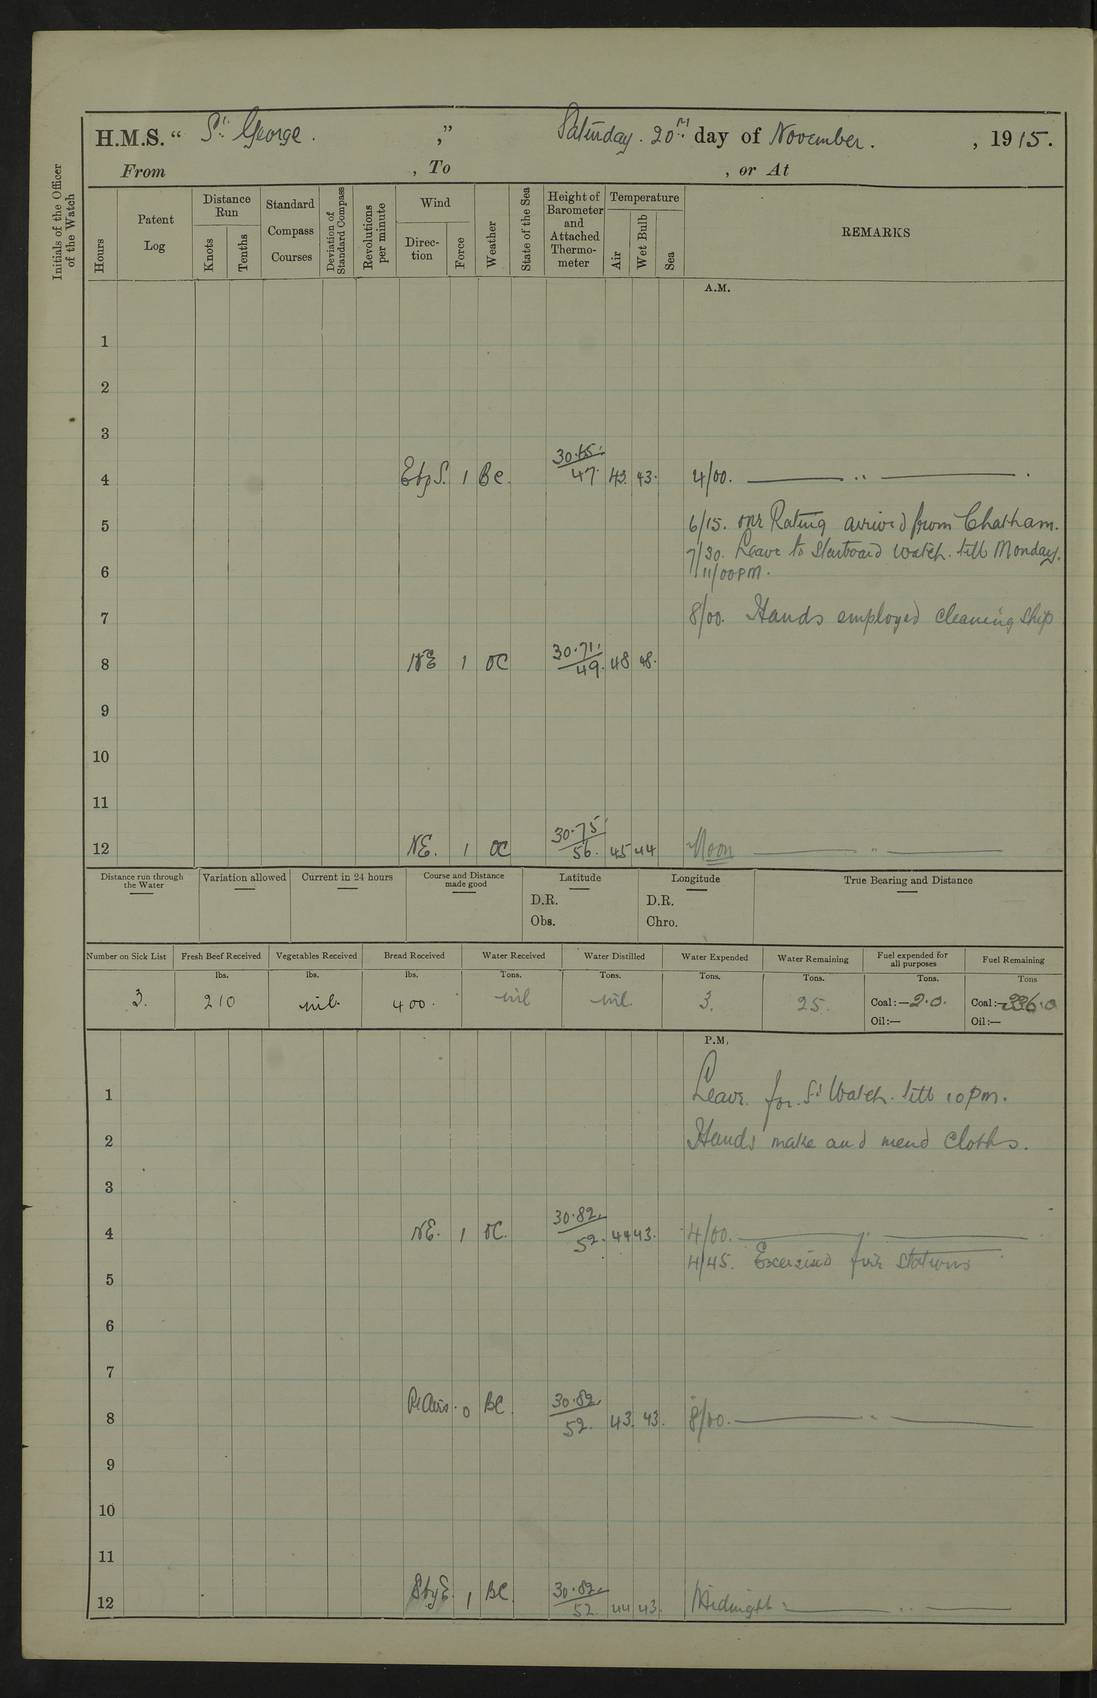 H.M.S. “ St George. ,” Saturday. 20th day of November. , 1915.
From , To , or At
Initials of the Officer of the Watch
Hours
Patent Log
Distance Run
Knots
Tenths
Standard Compass Courses
Deviation of Standard Compass
Revolutions per minute
Wind
Direc-tion
Force
Weather
State of the Sea
Height of Barometer and Attached Thermo-meter
Temperature
Air
Wet Bulb
Sea
REMARKS
A.M.
1
2
3
4 EbyS. 1 Bc. 30. 47. 43. 43. 4/00. ——— „ ——— .
5 6/15. one Rating arrived from Chatham.
7/30. Leave to Starboard Watch. till Monday.
6 11/00 PM.
7 8/00. Hands employed cleaning ship
8 NE 1 OC 30.71. 49. 48 48.
9
10
11
12 NE. 1 OC 30.75 56. 45 44 Noon ——— „ ———
Distance run through the Water
Variation allowed
Current in 24 hours
Course and Distance made good
Latitude
D.R.
Obs.
Longitude
D.R.
Chro.
True Bearing and Distance
Number on Sick List
Fresh Beef Received
Vegetables Received
Bread Received
Water Received
Water Distilled
Water Expended
Water Remaining
Fuel expended for all purposes
Fuel Remaining
lbs. lbs. lbs. Tons. Tons. Tons. Tons. Tons. Tons
3. 210 nil. 400. nil nil 3. 25. Coal:—2.0. Coal:—
Oil:— Oil:—
P.M.
1 Leave for St Watch. till 10 pm.
2 Hands make and mend cloths.
3
4 NE. 1 OC. 30.82. 52. 44 43. 4/00. ——— „ ———
4/45. Exercised fire stations
5
6
7
8 0 BC. 30.82. 52. 43. 43. 8/00. ——— „ ———
9
10
11
12 1 BC. 30.82. 52. 44 43. Midnight ——— „ ———